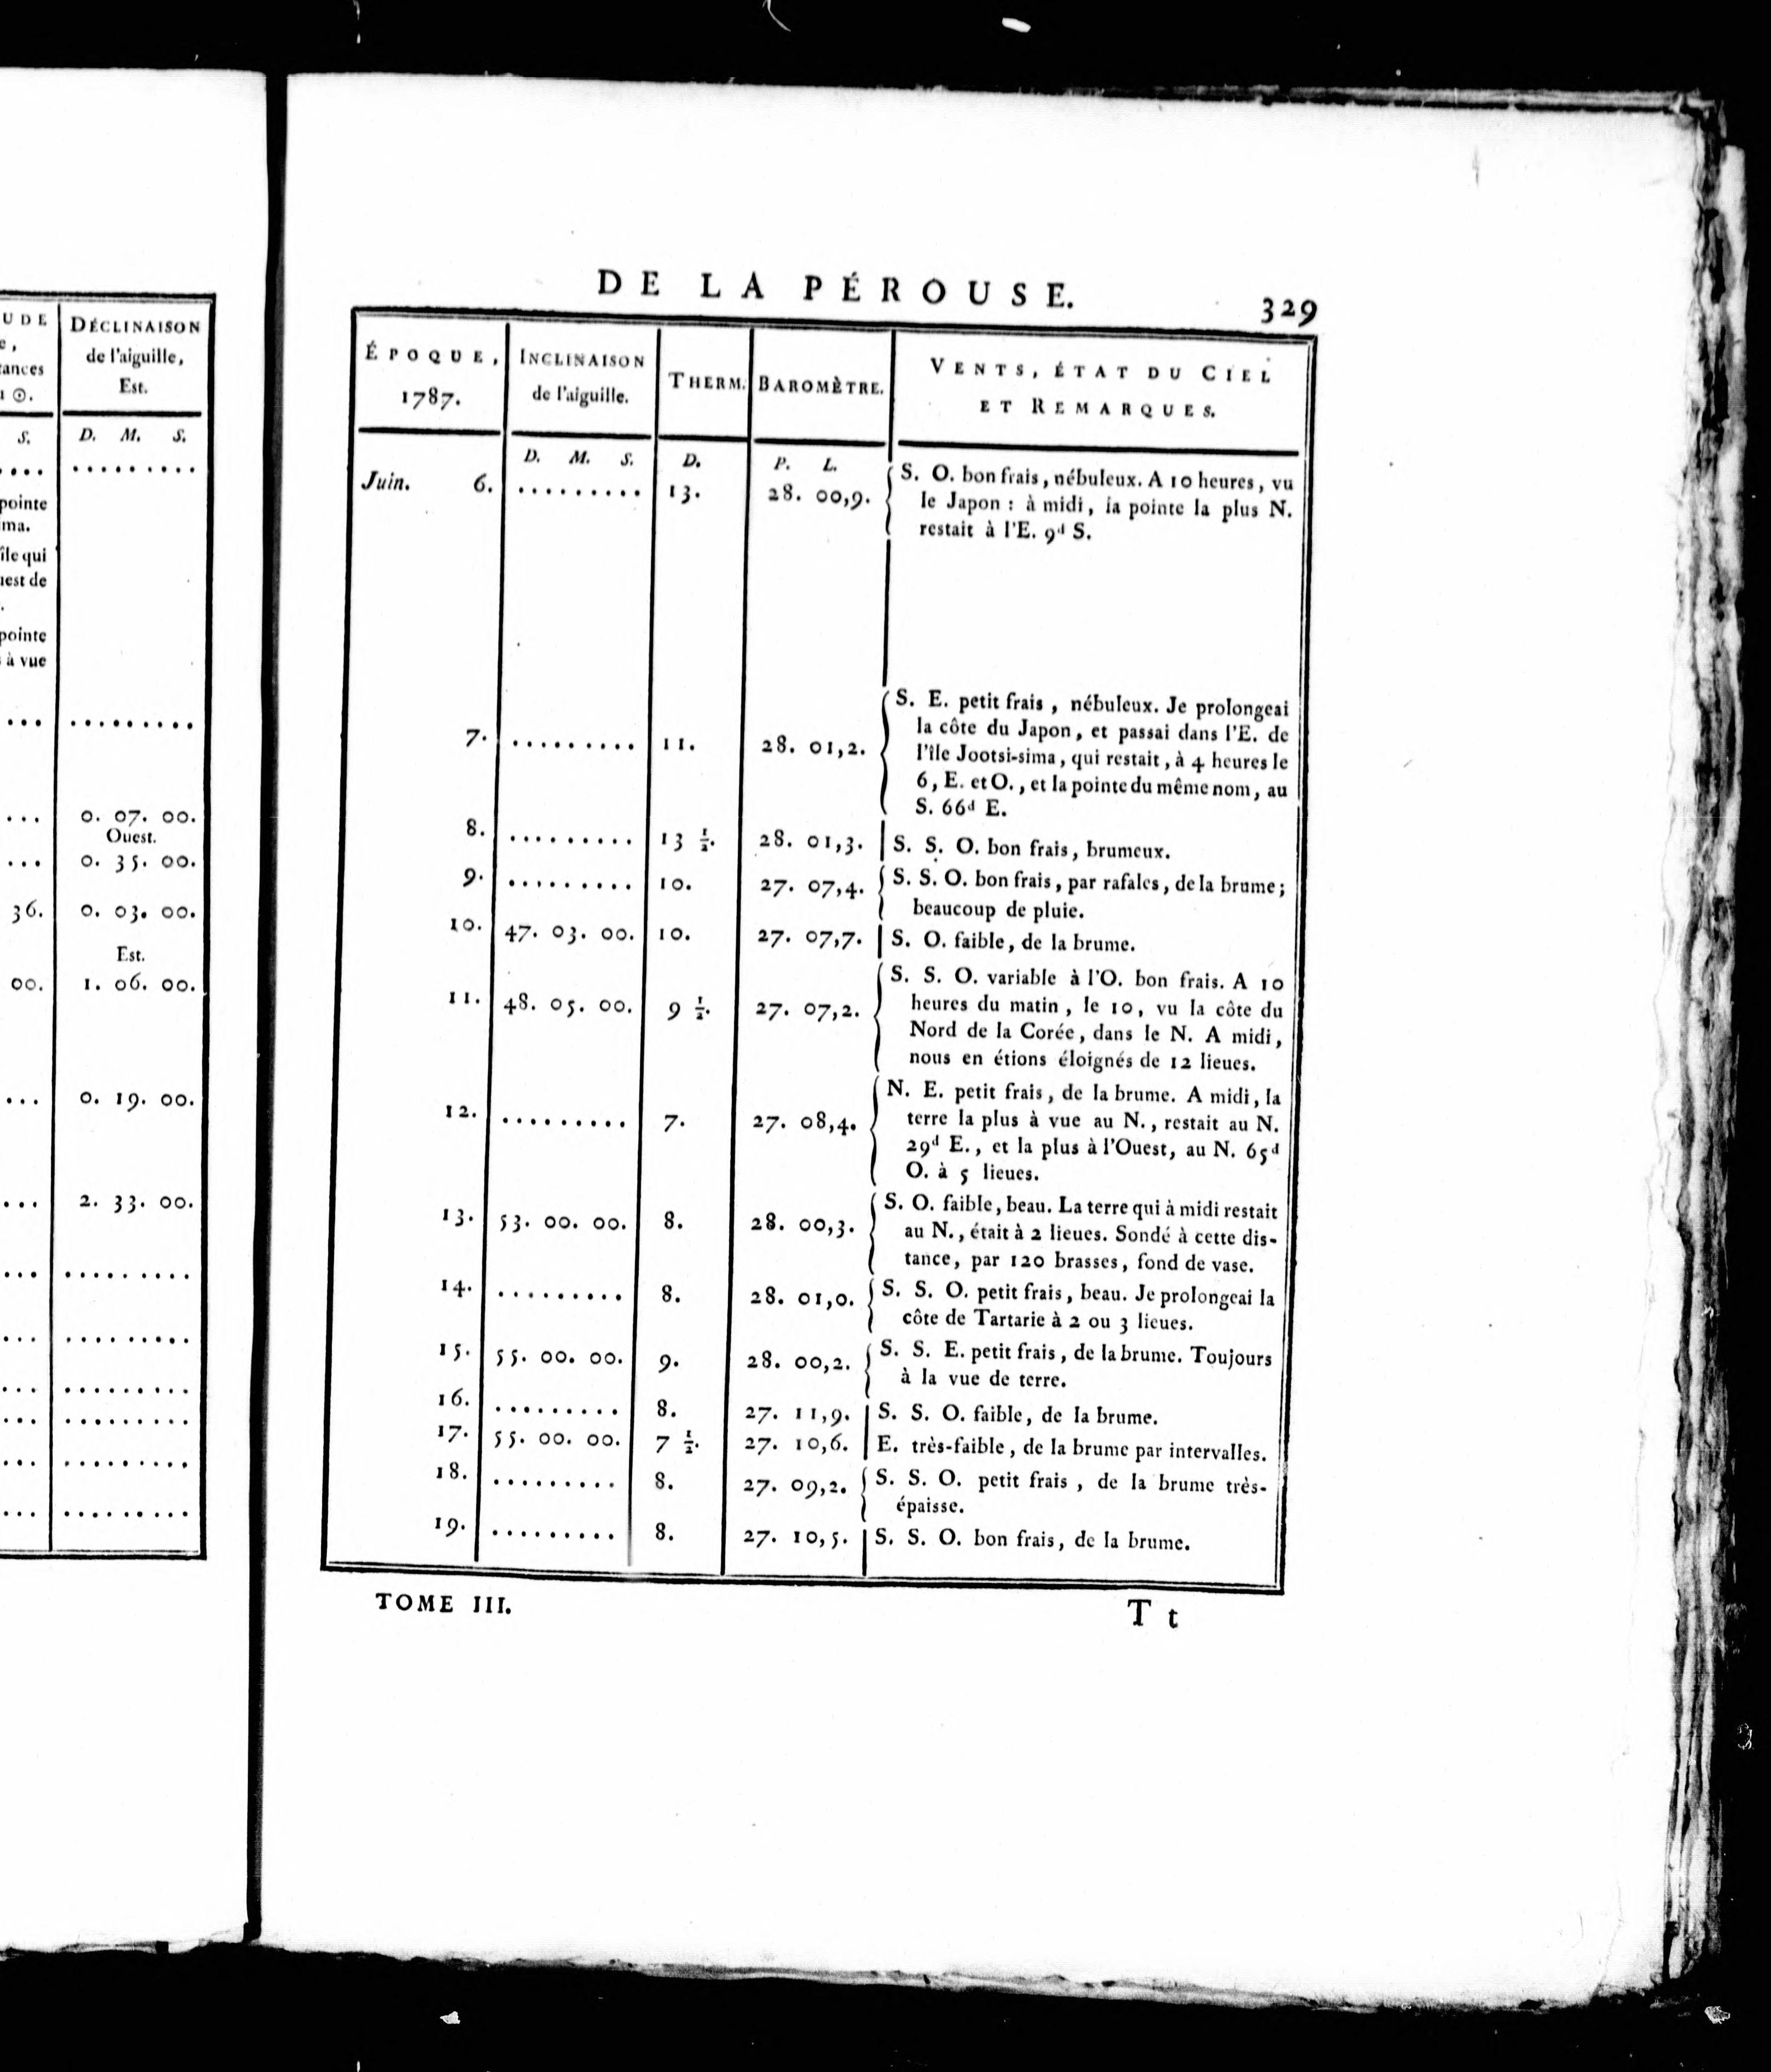 UDE
e,
tances
⊙.
S.
....
pointe
ma.
île qui
uest de
.
pointe
à vue
...
...
...
36.
00.
...
...
...
...
...
...
...
...
DÉCLINAISON
de l'aiguille,
Est.
D. M. S.
.........
.........
0. 07. 00.
Ouest.
0. 35. 00.
0. 03. 00.
Est.
1. 06. 00.
0. 19. 00.
2. 33. 00.
.........
.........
.........
.........
.........
.........
DE LA PÉROUSE. 329
ÉPOQUE, 1787. | INCLINAISON de l'aiguille. | THERM. | BAROMÈTRE. | VENTS, ÉTAT DU CIEL
ET REMARQUES.
D. M. S. D. P. L.
Juin. 6. ......... 13. 28. 00,9. S. O. bon frais, nébuleux. A 10 heures, vu
le Japon : à midi, la pointe la plus N.
restait à l'E. 9d S.
S. E. petit frais, nébuleux. Je prolongeai
la côte du Japon, et passai dans l'E. de
7. ......... 11. 28. 01,2. l'île Jootsi-sima, qui restait, à 4 heures le
6, E. et O., et la pointe du même nom, au
S. 66d E.
8. ......... 13 1/2. 28. 01,3. S. S. O. bon frais, brumeux.
9. ......... 10. 27. 07,4. S. S. O. bon frais, par rafales, de la brume;
beaucoup de pluie.
10. 47. 03. 00. 10. 27. 07,7. S. O. faible, de la brume.
S. S. O. variable à l'O. bon frais. A 10
11. 48. 05. 00. 9 1/2. 27. 07,2. heures du matin, le 10, vu la côte du
Nord de la Corée, dans le N. A midi,
nous en étions éloignés de 12 lieues.
N. E. petit frais, de la brume. A midi, la
12. ......... 7. 27. 08,4. terre la plus à vue au N., restait au N.
29d E., et la plus à l'Ouest, au N. 65d
O. à 5 lieues.
S. O. faible, beau. La terre qui à midi restait
13. 53. 00. 00. 8. 28. 00,3. au N., était à 2 lieues. Sondé à cette dis-
tance, par 120 brasses, fond de vase.
14. ......... 8. 28. 01,0. S. S. O. petit frais, beau. Je prolongeai la
côte de Tartarie à 2 ou 3 lieues.
15. 55. 00. 00. 9. 28. 00,2. S. S. E. petit frais, de la brume. Toujours
à la vue de terre.
16. ......... 8. 27. 11,9. S. S. O. faible, de la brume.
17. 55. 00. 00. 7 1/2. 27. 10,6. E. très-faible, de la brume par intervalles.
18. ......... 8. 27. 09,2. S. S. O. petit frais, de la brume très-
épaisse.
19. ......... 8. 27. 10,5. S. S. O. bon frais, de la brume.
TOME III. T t